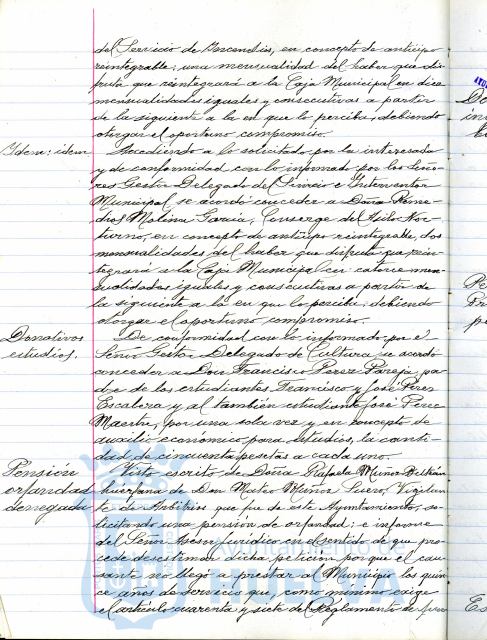 del Servicio de Incendios, en concepto de anticipo
reintegrable, una mensualidad del haber que dis-
fruta que reintegrará a la Caja Municipal en diez
mensualidades iguales y consecutivas a partir
de la siguiente a la en que lo perciba, debiendo
otorgar el oportuno compromiso.
Idem: idem
Accediendo a lo solicitado por la interesada
y de conformidad con lo informado por los Seño-
res Gestor Delegado de e Interventor
Municipal, se acordó conceder a Doña Reme-
dios Molina García, Conserge del Asilo Noc-
turno, en concepto de anticipo reintegrable, dos
mensualidades del haber que disfruta que rein-
tegrará a la Caja Municipal en catorce men-
sualidades iguales y consecutivas a partir de
la siguiente a la en que lo perciba, debiendo
otorgar el oportuno compromiso.
Donativos
estudios.
De conformidad con lo informado por el
Señor Gestor Delegado de Cultura se acordó
conceder a Don Francisco Perez Pareja, pa-
dre de los estudiantes Francisco y José Pérez
Escalera y al también estudiante José Perez
Maestre, por una sola vez y en concepto de
auxilio económico para estudios, la canti-
dad de cincuenta pesetas a cada uno.
Pensión
orfandad
denegada
Visto escrito de Doña Rafaela Muñoz Beltrán
huerfana de Don Mateo Muñoz Suero, Vigilan-
te de Arbitrios que fue de este Ayuntamiento, so-
licitando una pension de orfandad; e informe
del Señor Asesor Juridico en el sentido de que pro-
cede desestimar dicha peticion porque el cau-
sante no llegó a prestar al Municipio los quin-
ce años de servicios que, como minimo exige
el artículo cuarenta y siete del Reglamento de
Ayuntamiento de